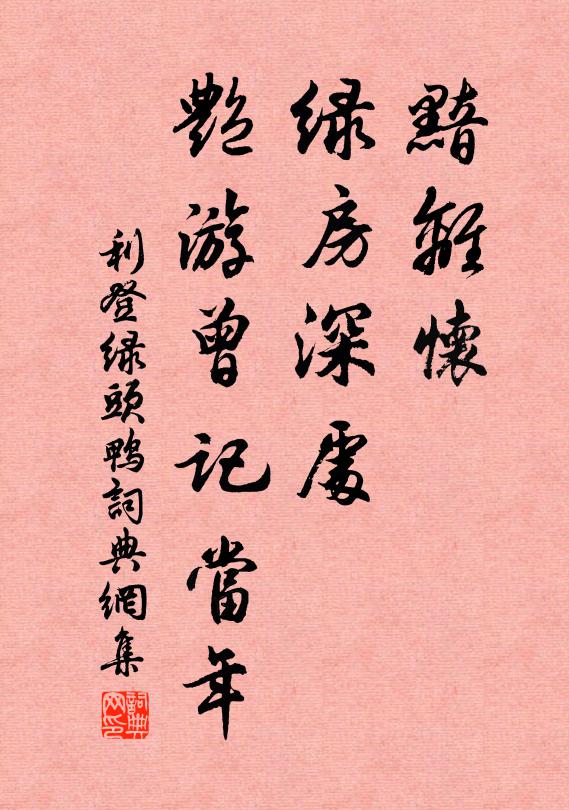 黯離懷
緑房深處
艷游曾記當年
利登緑頭鴨詞典網集
詞典网印